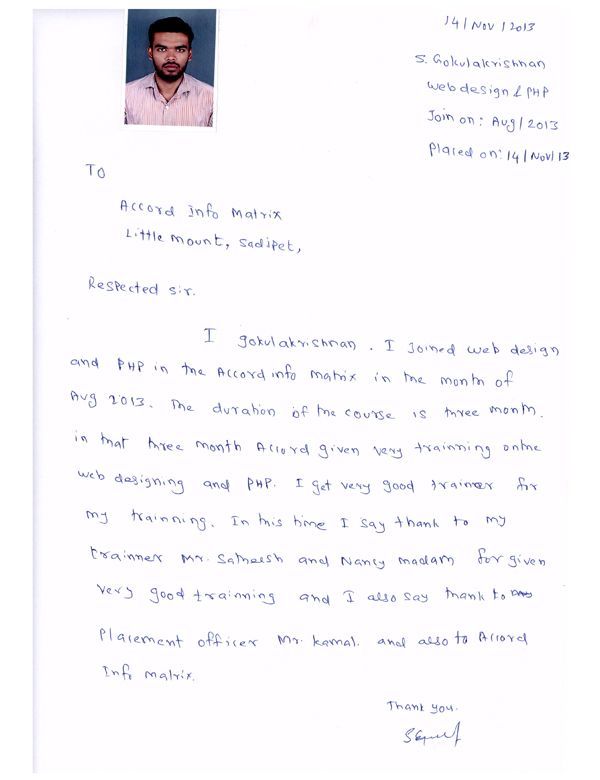 14/Nov/2013
S. Gokulakrishnan
Web design & PHP
Join on: Aug/2013
Placed on: 14/Nov/13
To
Accord Info Matrix
Little mount, Sadipet,
Respected sir.
I gokulakrishnan. I Joined web design
and PHP in the Accord info matrix in the month of
Aug 2013. The duration of the course is three month.
in that three month Accord given very trainning onthe
web designing and PHP. I get very good trainer for
my trainning. In this time I say thank to my
trainner Mr. Satheesh and Nancy madam for given
very good trainning and I also say thank to
Placement officer Mr. Kamal. and also to Accord
Info matrix.
Thank you.